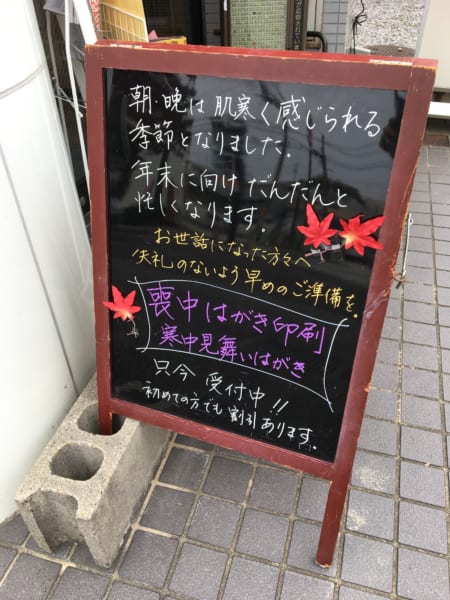 朝・晩は肌寒く感じられる
季節となりました。
年末に向けだんだんと
忙しくなります。
お世話になった方々へ
失礼のないよう早めのご準備を。
喪中はがき印刷
寒中見舞いはがき
只今 受付中!!
初めての方でも割引あります。